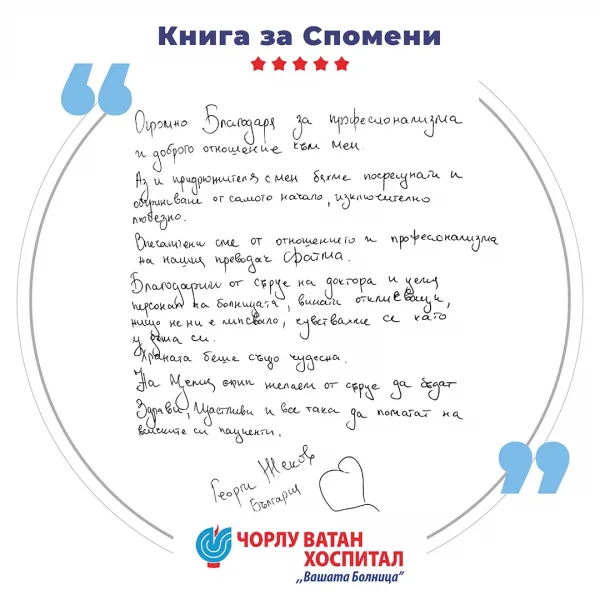 Книга за Спомени
Огромно Благодаря за професионализма
и доброто отношение към мен.
Аз и придружителя с мен бяхме посрещнати и
обгрижване от самото начало, изключително
любезно.
Впечатлени сме от отношението и професионализма
на нашия преводач Фатма.
Благодарим от сърце на доктора и целия
персонал на болницата, винаги откликващи,
нищо не ни е липсвало, чувствахме се като
у дома си.
Храната беше също чудесна.
На Целия екип желаем от сърце да бъдат
Здрави, Щастливи и все така да помагат на
всичките си пациенти.
Георги Жеков
България
ЧОРЛУ ВАТАН
ХОСПИТАЛ
,,Вашата Болница"